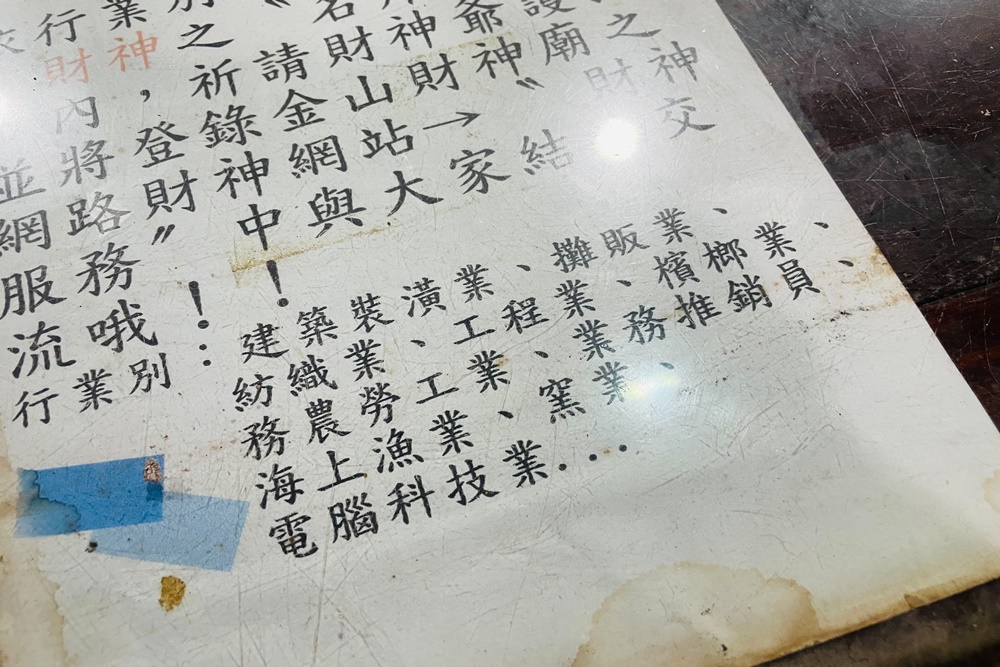 行業別
財神之 名
內，祈請財神爺護
並將登錄金山財神廟之
網路財神網站→〝財神
服務〞中與大家結交
流哦！！
行業別：
建築裝潢業、攤販業、
紡織業、工程業、檳榔業、
務農勞工業、業務推銷員、
海上漁業、窯業、
電腦科技業...